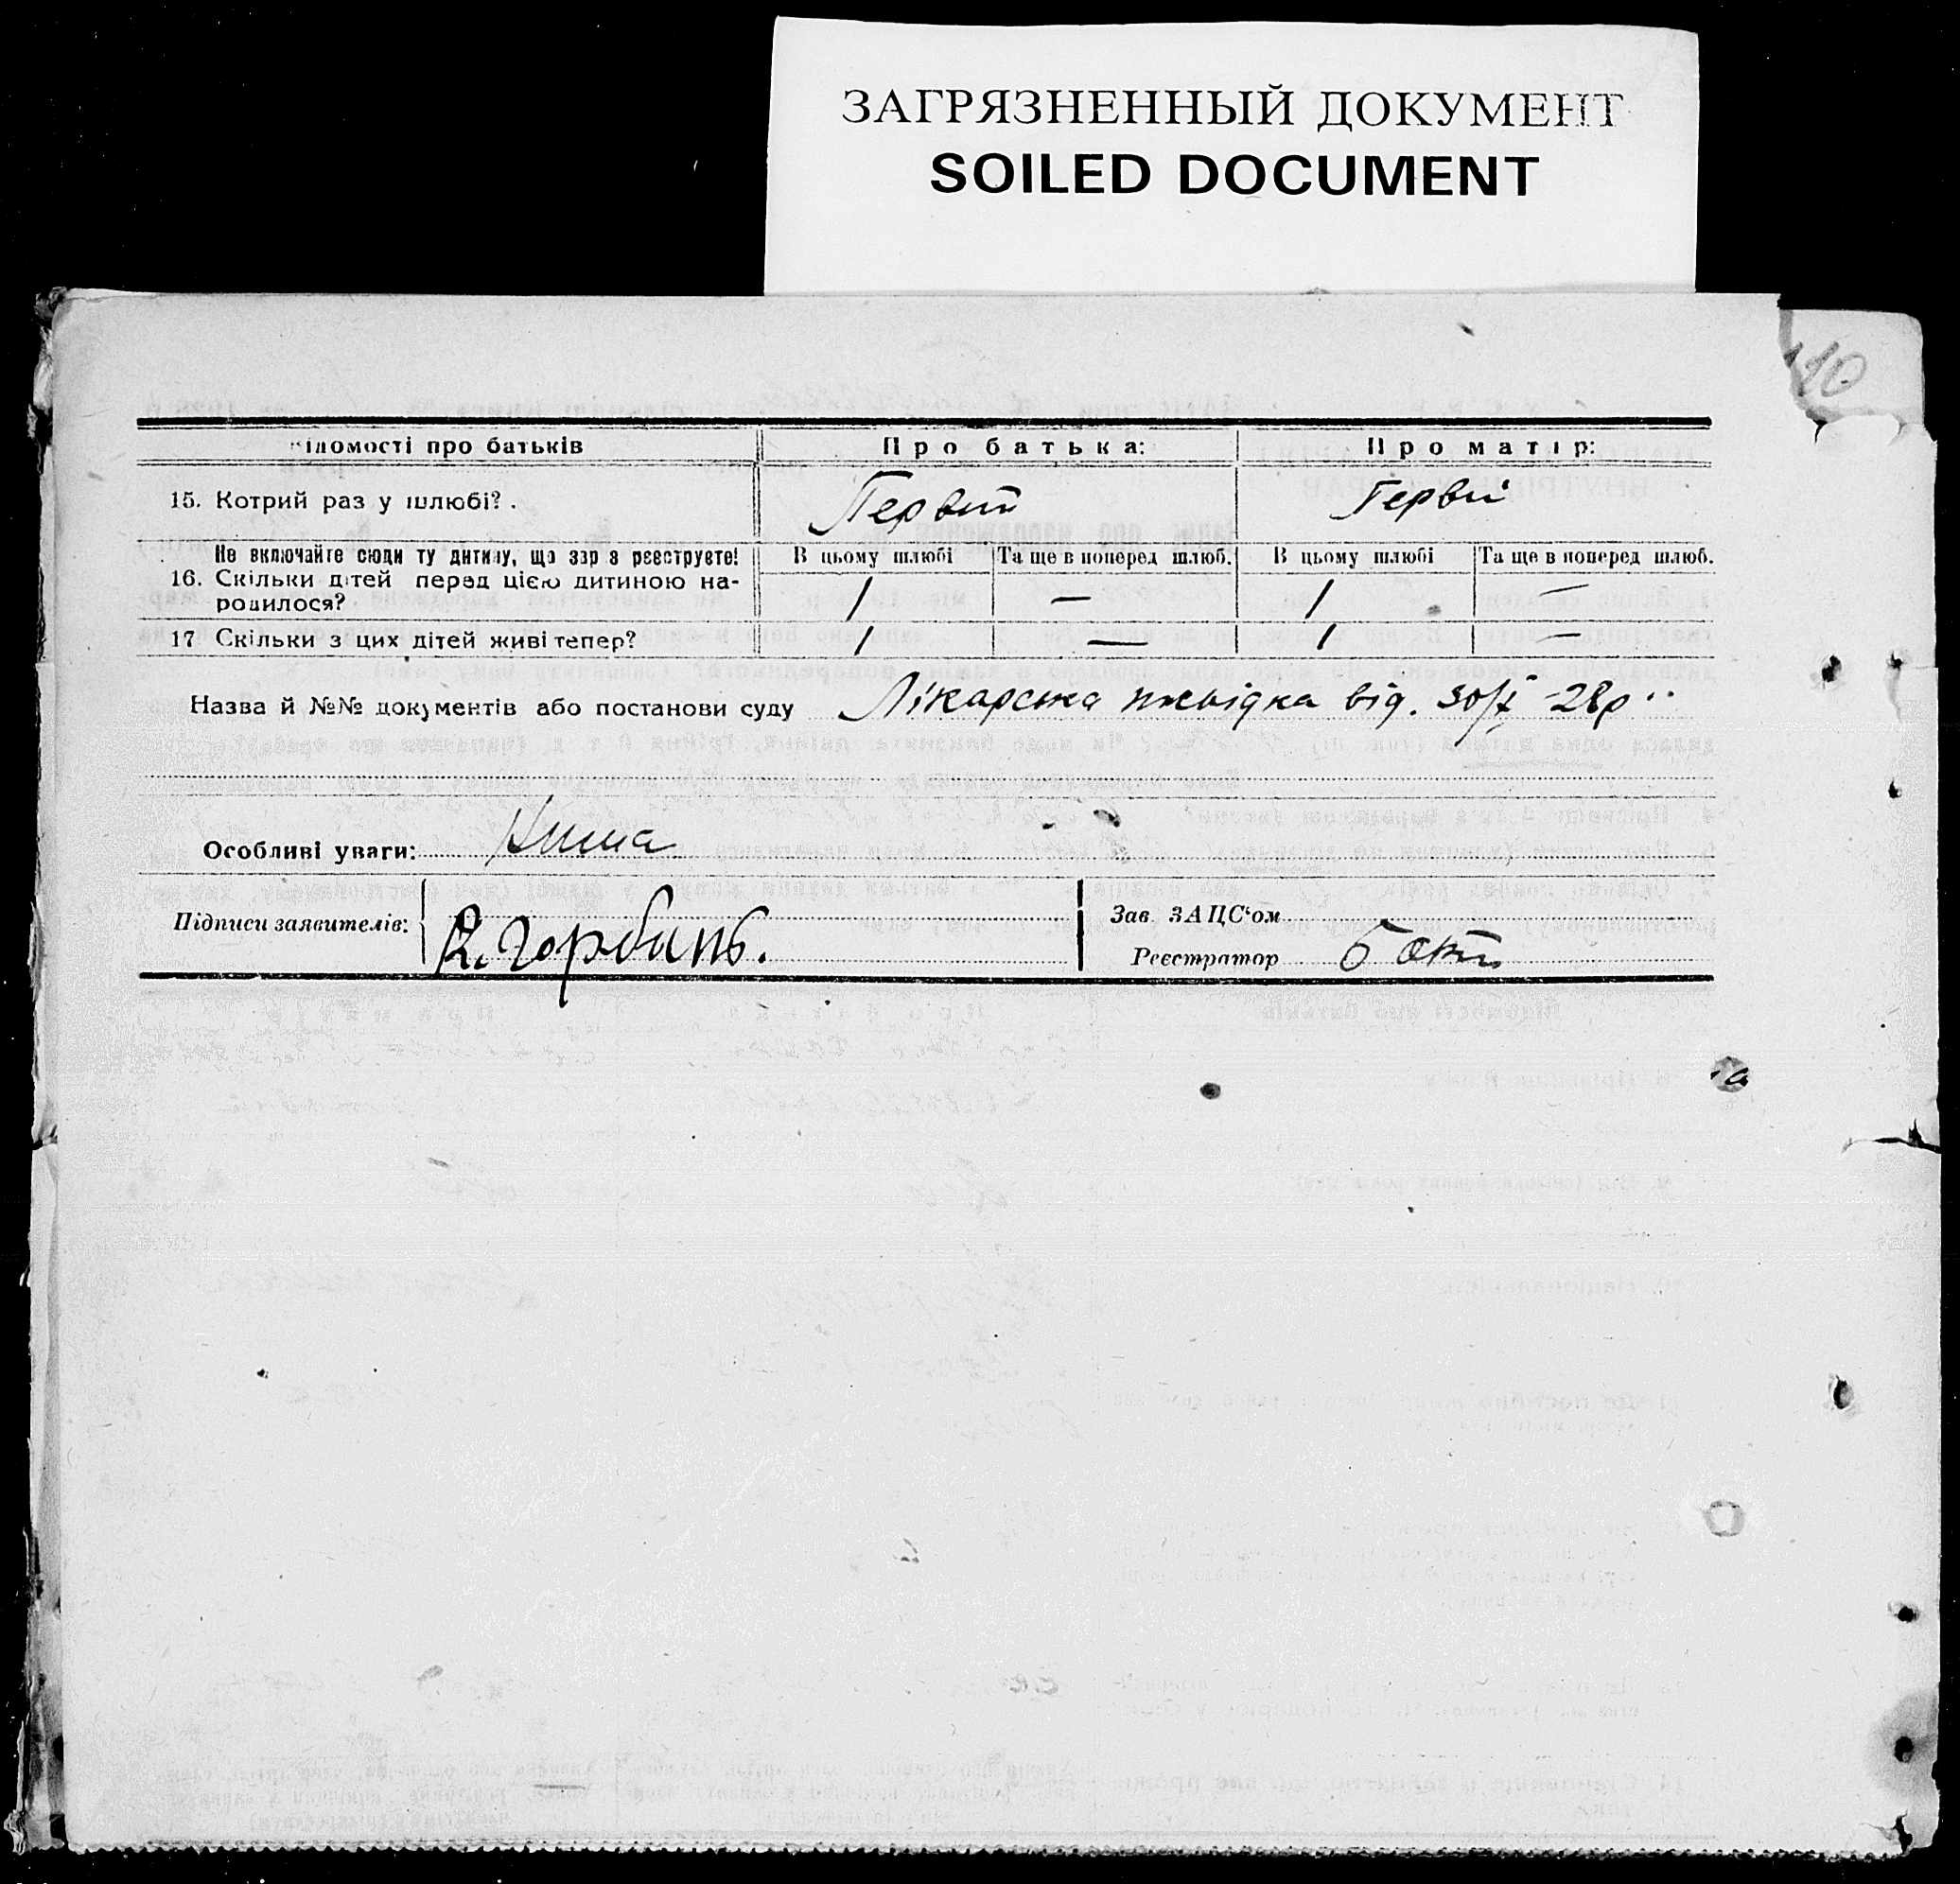 ЗАГРЯЗНЕННЫЙ ДОКУМЕНТ
SOILED DOCUMENT
10
ідомості про батьків Про батька: Про матір:
15. Котрий раз у шлюбі? . Первий Первий
Не включайте сюди ту дитину, що зараз реєструєте! В цьому шлюбі Та ще в поперед шлюб. В цьому шлюбі Та ще в поперед шлюб.
16. Скільки дітей перед цією дитиною на-
родилося? 1 — 1 —
17 Скільки з цих дітей живі тепер? 1 — 1 —
Назва й №№ документів або постанови суду Лікарська від. 30/I – 28р.
Особливі уваги:
Підписи заявителів: Горбань. Зав. ЗАЦС'ом
Реєстратор